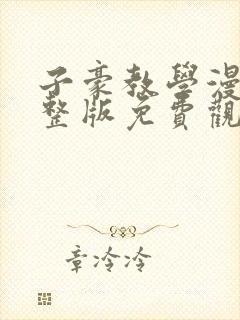 子豪教學漫
整版免費觀
章冷冷